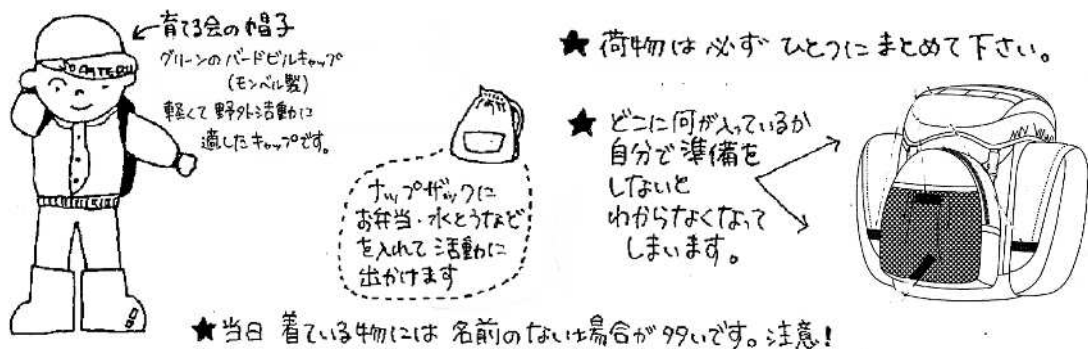 育てる会の帽子
グリーンのバードビルキャップ
(モンベル製)
軽くて野外活動に
適したキャップです。
ナップザックに
お弁当・水とうなど
を入れて活動に
出かけます
★荷物は必ずひとつにまとめて下さい。
★どこに何が入っているか
自分で準備を
しないと
わからなくなって
しまいます。
★当日着ている物には名前のない場合が多いです。注意!